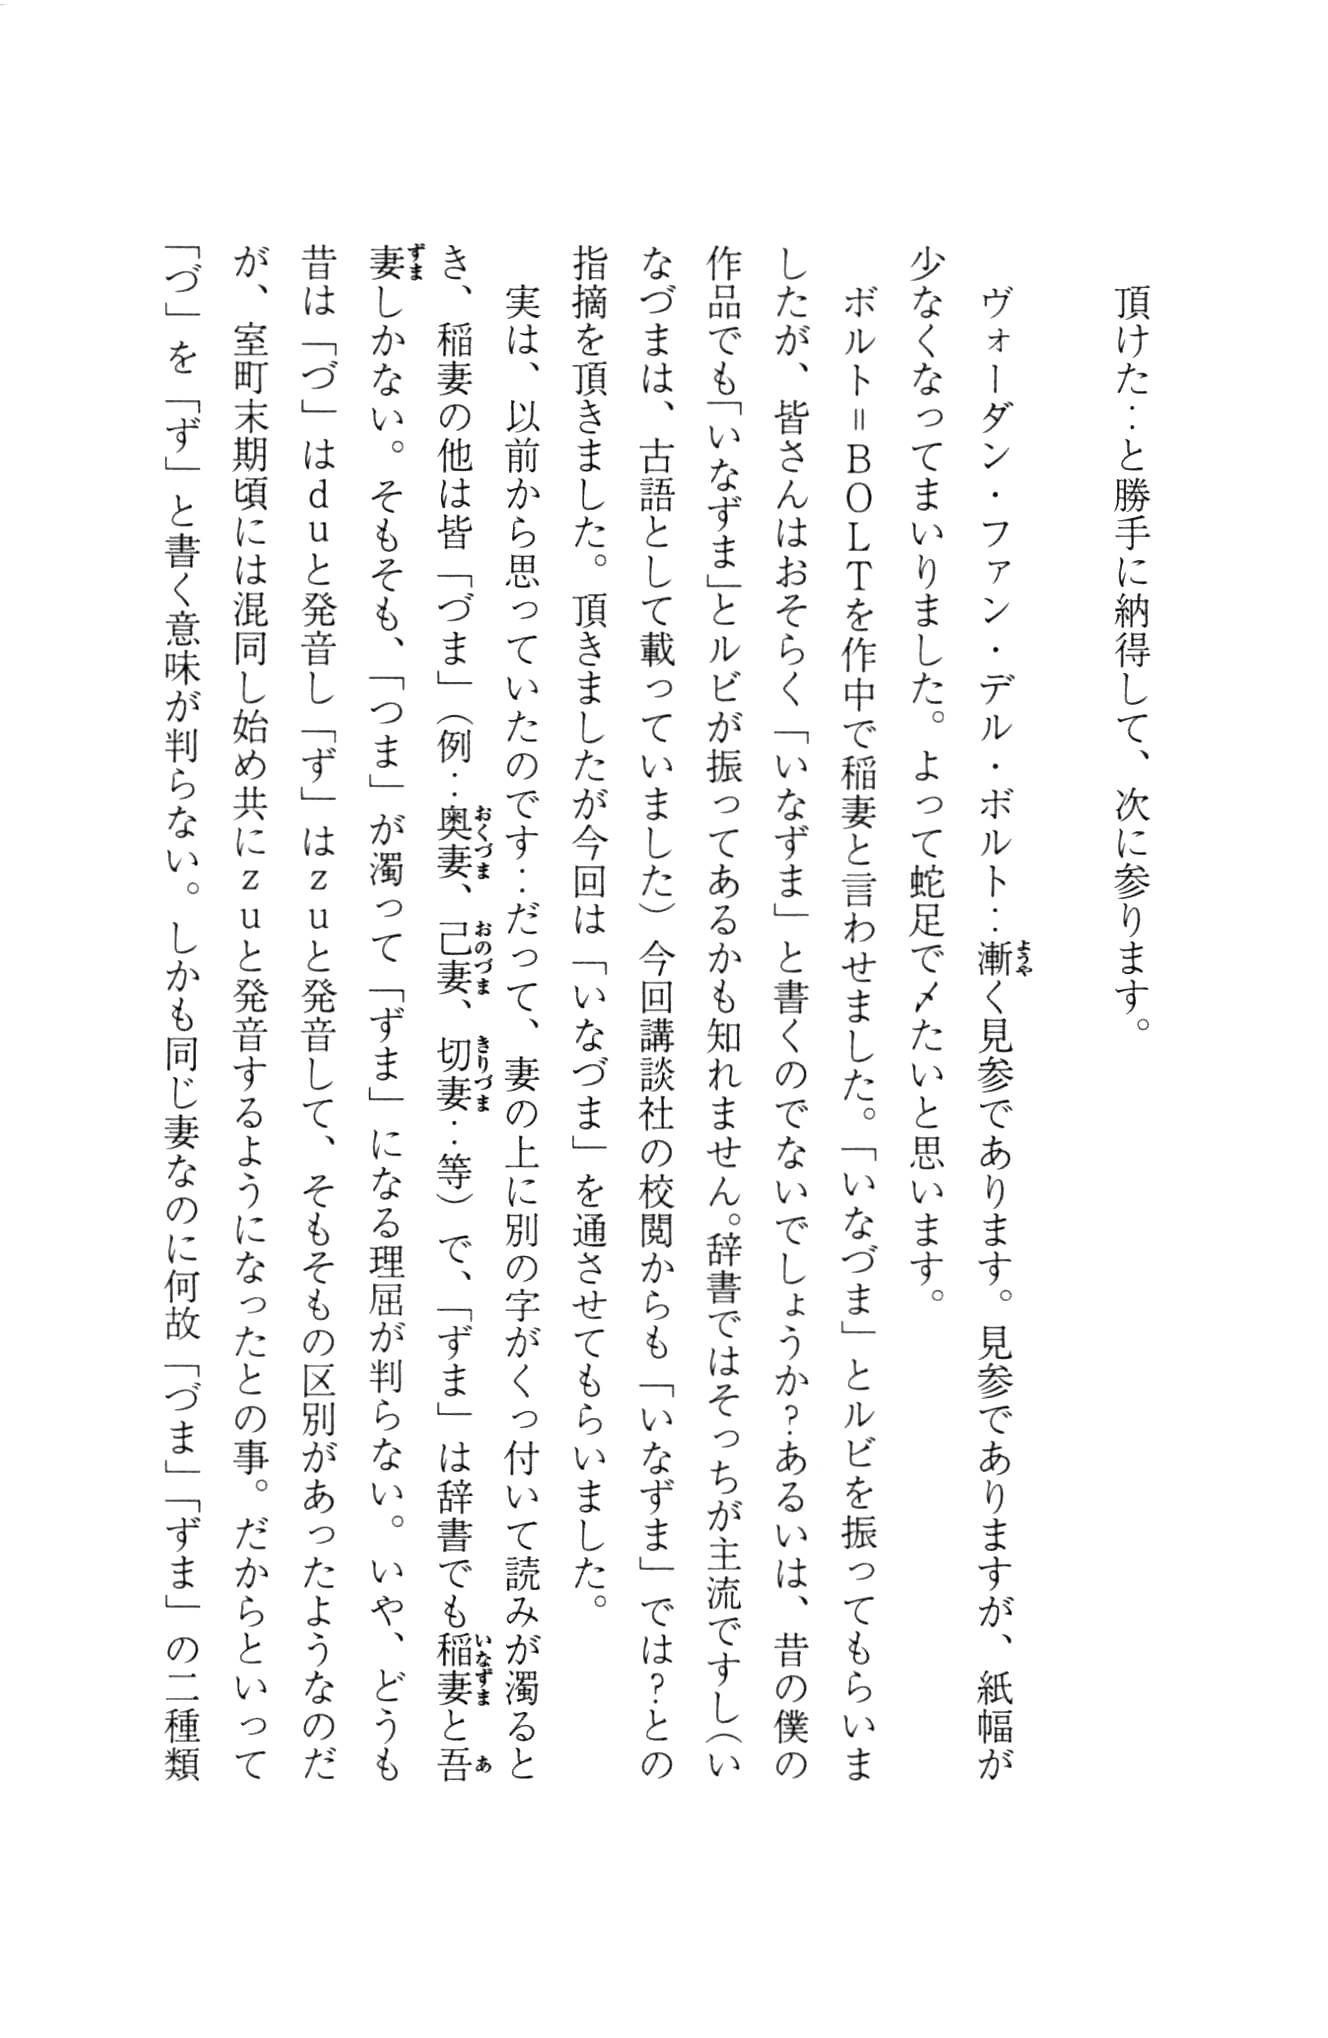 頂けた‥と勝手に納得して、次に参ります。
ヴォーダン・ファン・デル・ボルト‥漸く見参であります。見参でありますが、紙幅が
少なくなってまいりました。よって蛇足で〆たいと思います。
ボルト＝ＢＯＬＴを作中で稲妻と言わせました。「いなづま」とルビを振ってもらいま
したが、皆さんはおそらく「いなずま」と書くのでないでしょうか？あるいは、昔の僕の
作品でも「いなずま」とルビが振ってあるかも知れません。辞書ではそっちが主流ですし（い
なづまは、古語として載っていました）今回講談社の校閲からも「いなずま」では？との
指摘を頂きました。頂きましたが今回は「いなづま」を通させてもらいました。
実は、以前から思っていたのです‥だって、妻の上に別の字がくっ付いて読みが濁ると
き、稲妻の他は皆「づま」（例‥奥妻、己妻、切妻‥等）で、「ずま」は辞書でも稲妻と吾
妻しかない。そもそも、「つま」が濁って「ずま」になる理屈が判らない。いや、どうも
昔は「づ」はｄｕと発音し「ず」はｚｕと発音して、そもそもの区別があったようなのだ
が、室町末期頃には混同し始め共にｚｕと発音するようになったとの事。だからといって
「づ」を「ず」と書く意味が判らない。しかも同じ妻なのに何故「づま」「ずま」の二種類
ようや
おくづま
おのづま
きりづま
いなずま
あ
ずま